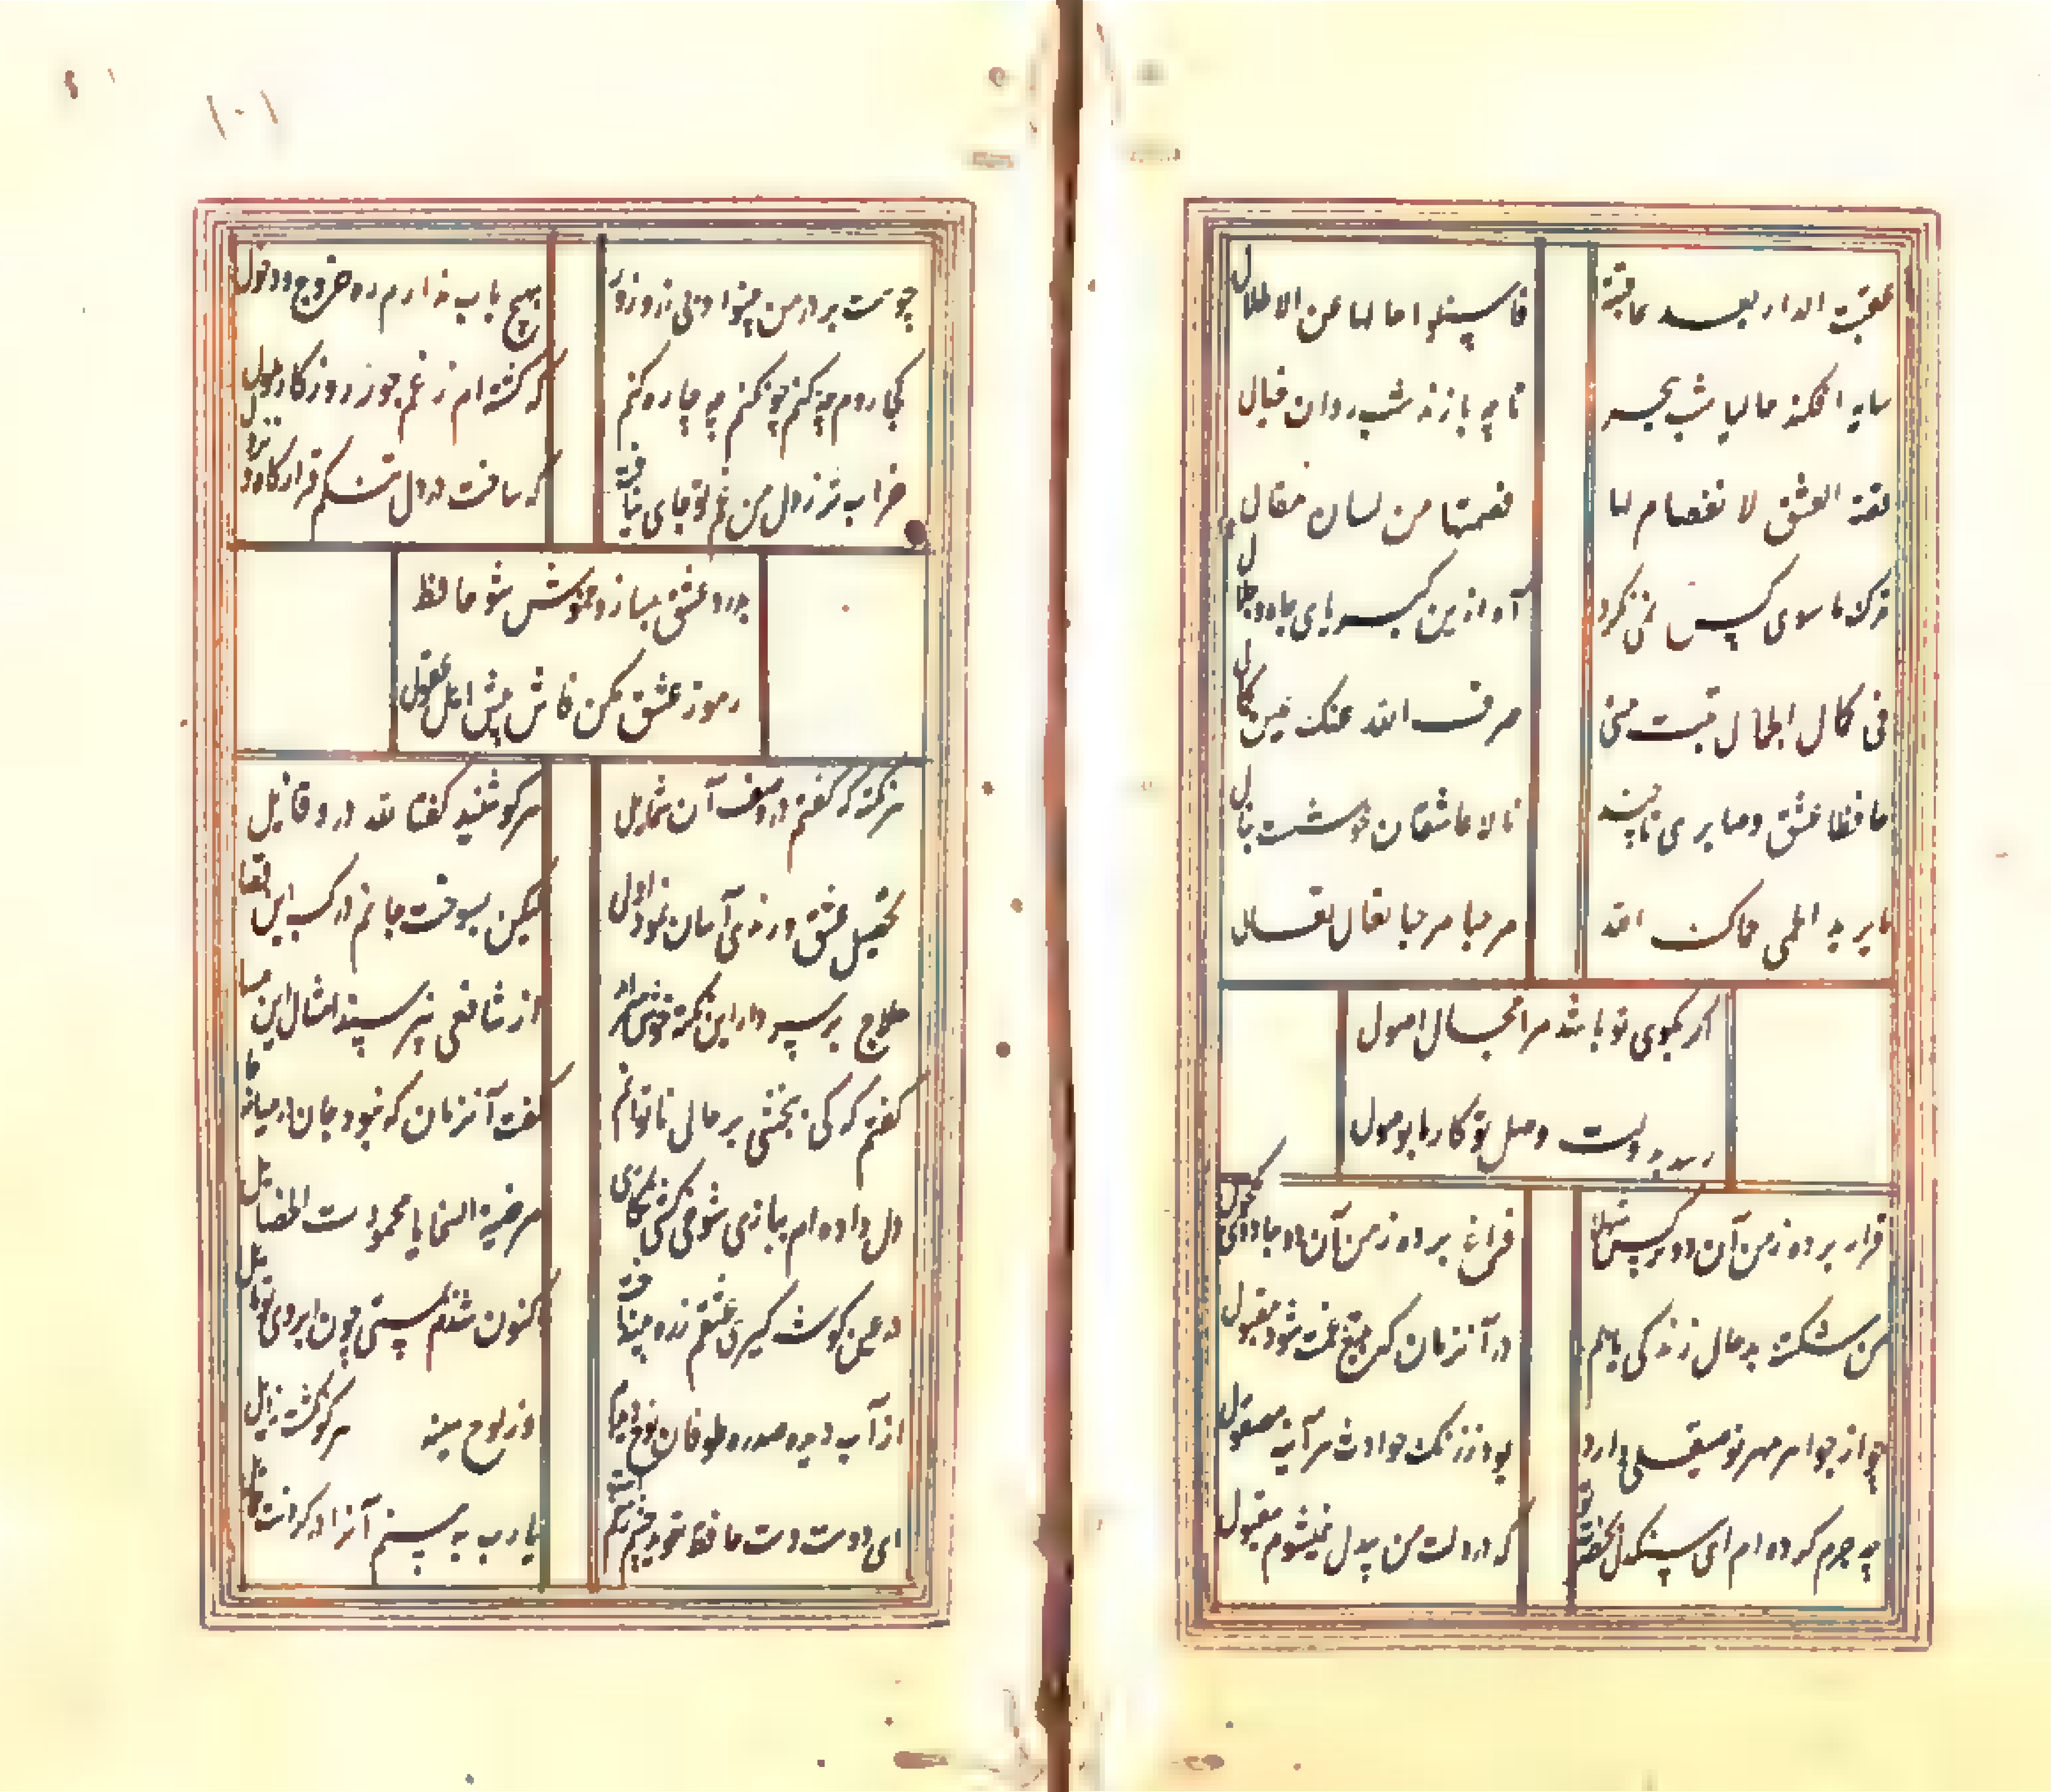 عفت الدار بعد عافیة
فاسپئلوا حالها عن الاطلال
سایه افکند حالیا شب هجر
تا چه بازند شب روان خیال
قصة العشق لا انفصام لها
فصمتا من لسان مقال
ترک ما سوی کس نمی نگرد
آه ازین کبریای جاه و جلال
فی کمال الجمال نلت منی
صرف الله عنک عین کمال
حافظا عشق و صابری تا چند
نالهٔ عاشقان خوشست بنال
یا برید الحمی حماک الله
مرحبا مرحبا تعال تعال
اگر بکوی تو باشد مرا مجال اصول
رسد بدولت وصل تو کار ما بوصول
قرار برده ز من آن دو نرکس شهلا
فراغ برده ز من آن دو جادوی مکحول
من شکسته بدحال زندکی یابم
در آنزمان که بتیغ غمت شوم مقبول
چو از جواهر مهر تو صیقلی دارد
بود ز زنک حوادث هر آینه مصقول
چه جرم کرده ام ای سنکدل بحضرت تو
که دولت من بیدل نمیشوم مقبول
چو هست بر در من بینوا ی زر و زور
بهیچ باب ندارم ره خروج و دخول
کجا روم چه کنم چون کنم چه چاره کنم
که کشته ام ز غم جور روزکار ملول
خراب تر ز دل من غم تو جای نیافت
که ساخت در دل تنکم قرارکاه نزول
بدرد عشق بساز و خموش شو حافظ
رموز عشق مکن فاش پیش اهل عقول
هر نکته که کفتم در وصف آن شمایل
هر کو شنید کفتا لله در قایل
تحصیل عشق و رندی آسان نمود اول
لیکن بسوخت جانم در کسب این فضایل
حلاج بر سر دار این نکته خوش سراید
از شافعی نپرسند امثال این مسایل
کفتم که کی ببخشی بر حال ناتوانم
کفت آنزمان که نبود جان در میانه حایل
دل داده ام بیازی شوخی کشی نکاری
مرضیة السجایا محمودة الخصایل
در عین کوشه کیری عشقم زد
اکنون شدم بمستی چون ابروی تو مایل
از آب دیده صدره طوفان نوح دیدم
وز لوح سینه هرکز نکشت زایل
ای دوست دست حافظ تعویذ چشم زخمست
یارب ببینم آنرا در کردنت حمایل
۱۰۱